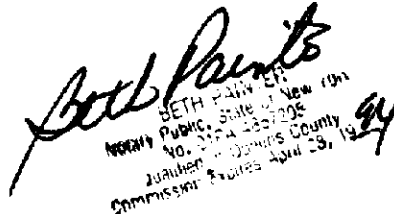 Beth Painter
BETH PAINTER
Notary Public, State of New York
No.
Qualified in Queens County
Commission Expires April 28, 1994